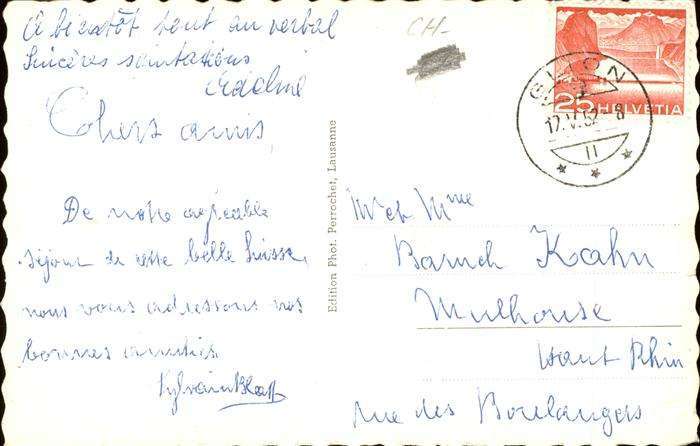 A bientôt tout au verbal
Sincères salutations
Chers amis
De notre agréable
séjour de cette belle Suisse,
nous vous adressons nos
bonnes amitiés
Sylvain Bloch
CH-
Edition Phot. Perrochet, Lausanne
GLION
12.V.52-8
II
25 HELVETIA
M et Mme
Baruch Kahn
Mulhouse
Haut Rhin
rue des Boulangers